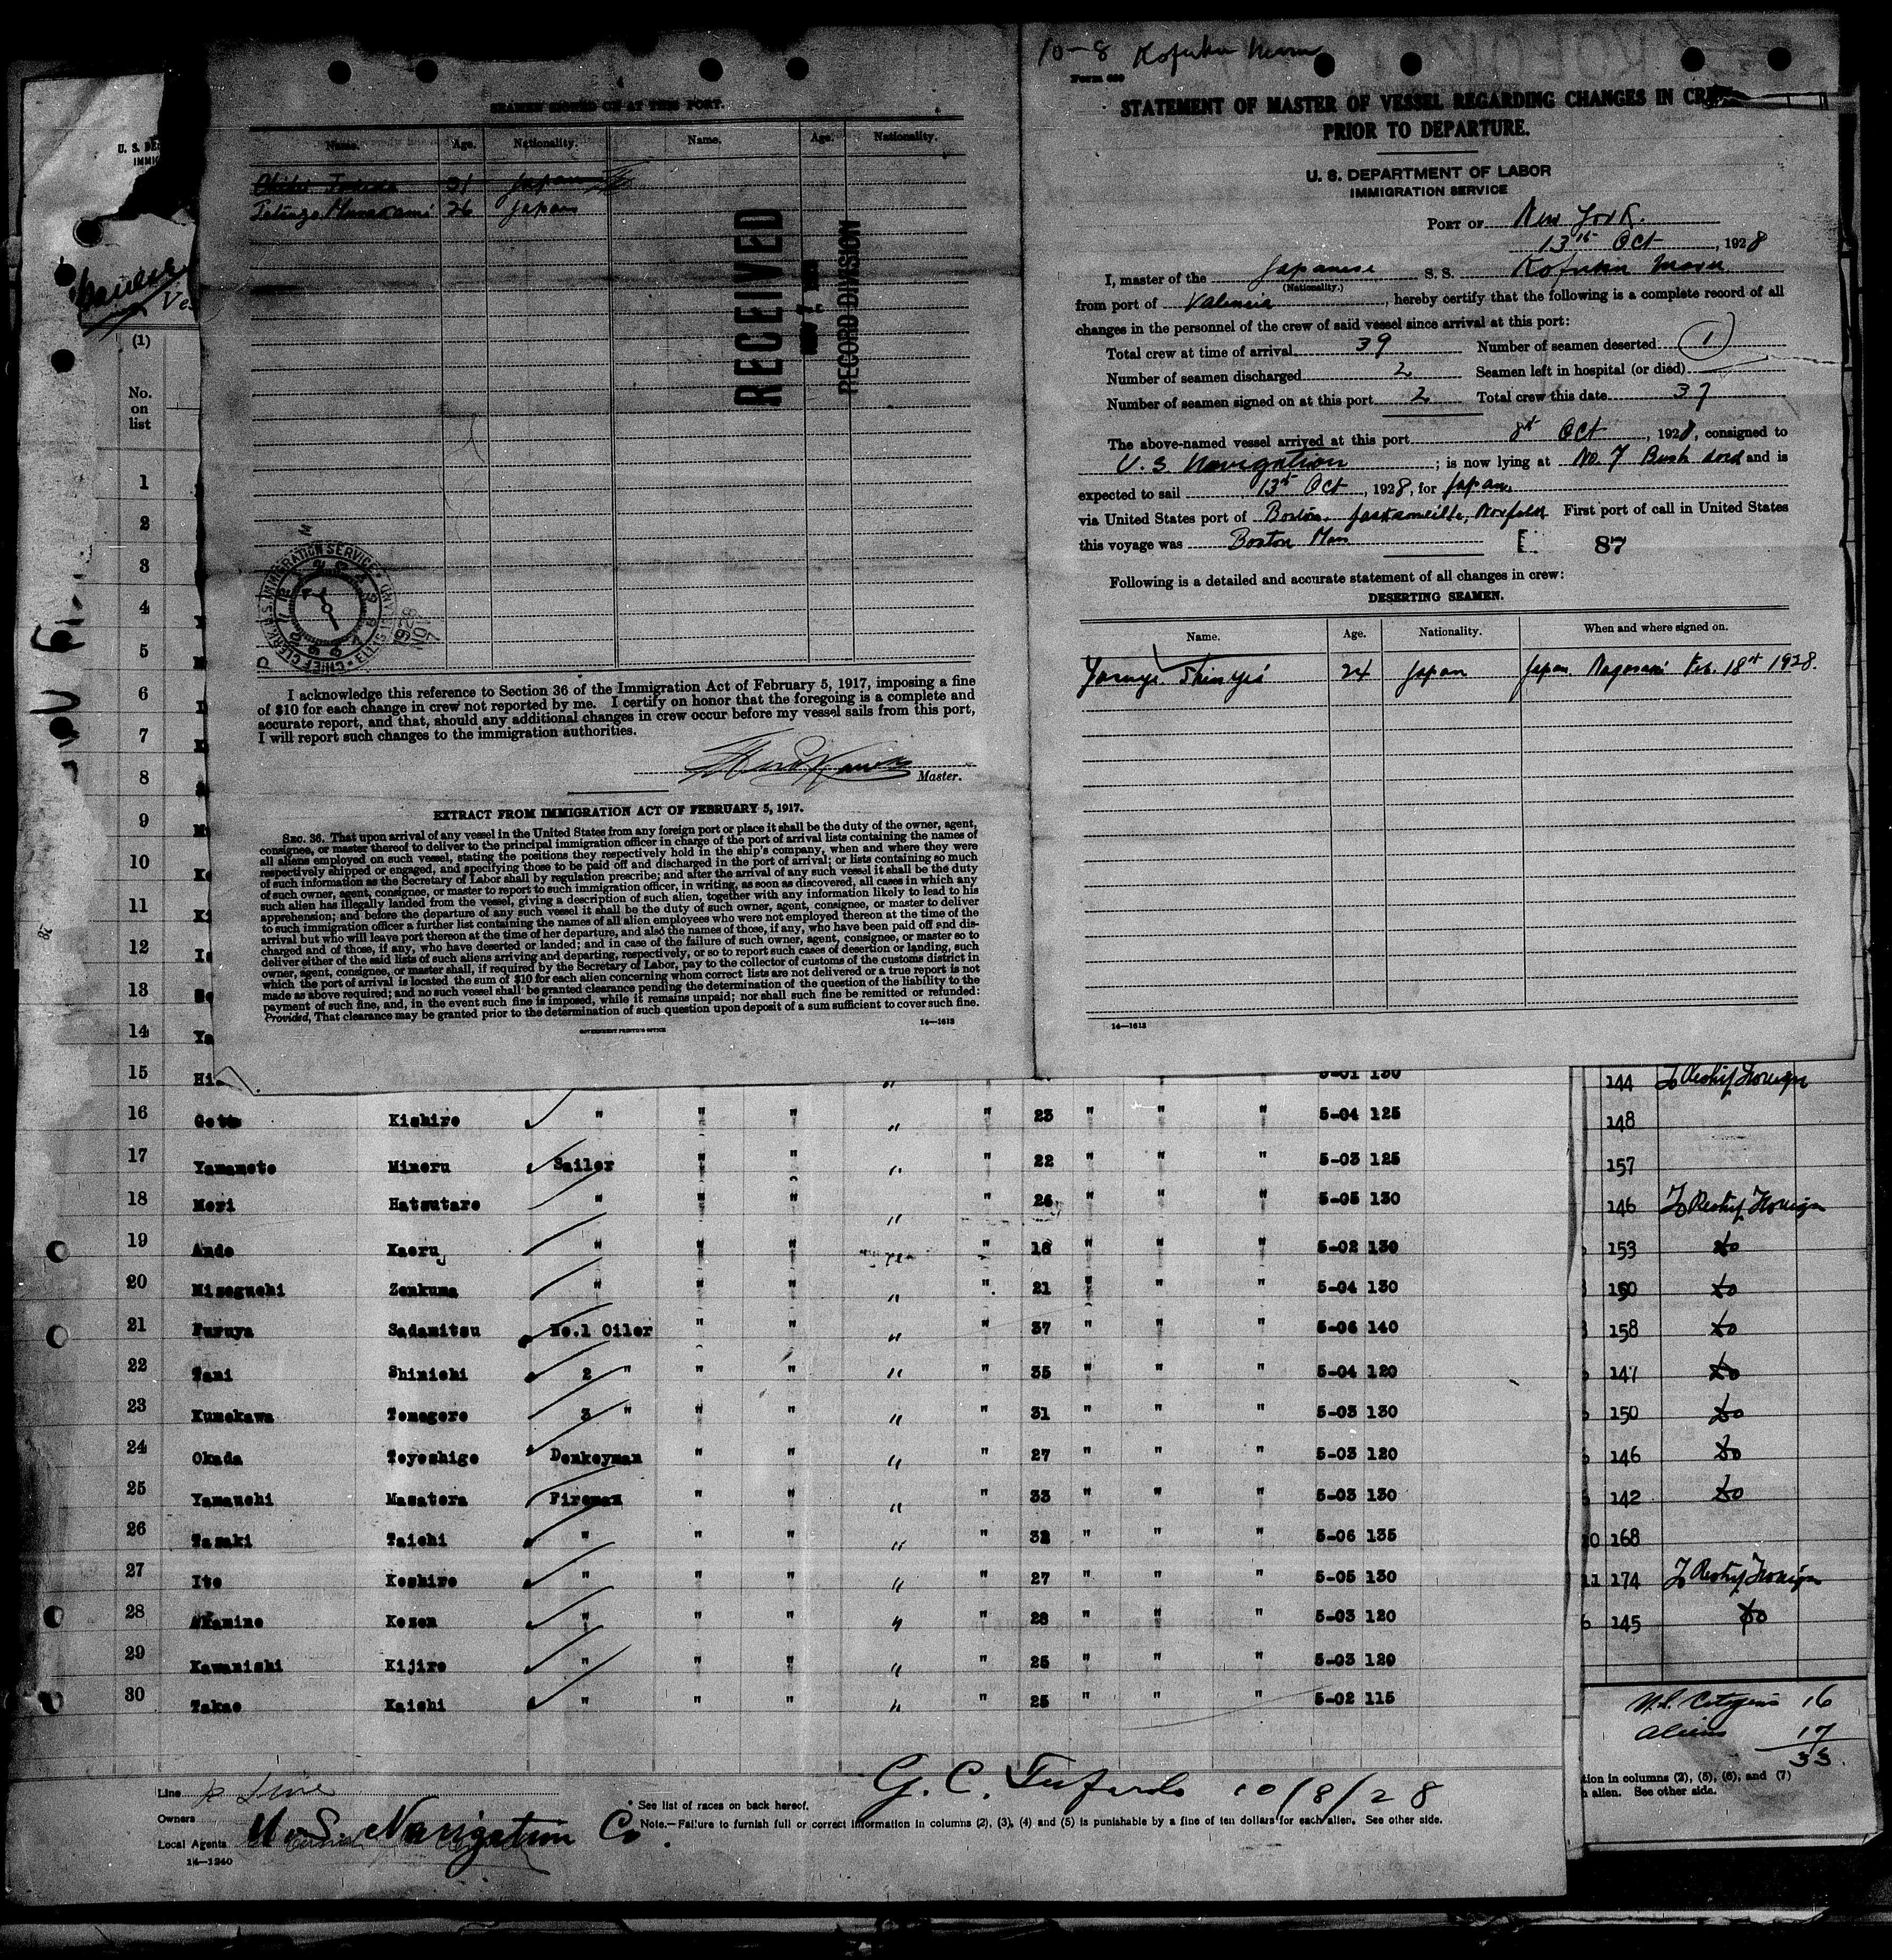 10-8 Kofuku Maru
Form 689
STATEMENT OF MASTER OF VESSEL REGARDING CHANGES IN
PRIOR TO DEPARTURE.
U. S. DEPARTMENT OF LABOR
IMMIGRATION SERVICE
PORT OF New York.
13th Oct, 1928
I, master of the Japanese S. S. Kofuku Maru
(Nationality.)
from port of Valencia, hereby certify that the following is a complete record of all
changes in the personnel of the crew of said vessel since arrival at this port:
Total crew at time of arrival 39 Number of seamen deserted 1
Number of seamen discharged 2 Seamen left in hospital (or died)
Number of seamen signed on at this port 2 Total crew this date 37
The above-named vessel arrived at this port 8th Oct, 1928, consigned to
U. S Navigation; is now lying at No. 7 Bush and is
expected to sail 13th Oct, 1928, for Japan.
via United States port of Boston, Jacksonville, Norfolk First port of call in United States
this voyage was Boston Mass
87
Following is a detailed and accurate statement of all changes in crew:
DESERTING SEAMEN.
Name. Age. Nationality. When and where signed on.
24 Japan Japan Nagasaki Feb. 18th 1928.
14—1613
4
SEAMEN SIGNED ON AT THIS PORT.
Name. Age. Nationality. Name. Age. Nationality.
31 Japan
Tetsugo Murakami 26 Japan
RECEIVED
RECORD DIVISION
CHIEF CLERK U.S. IMMIGRATION SERVICE
1928 NOV 7
I acknowledge this reference to Section 36 of the Immigration Act of February 5, 1917, imposing a fine
of $10 for each change in crew not reported by me. I certify on honor that the foregoing is a complete and
accurate report, and that, should any additional changes in crew occur before my vessel sails from this port,
I will report such changes to the immigration authorities.
Master.
EXTRACT FROM IMMIGRATION ACT OF FEBRUARY 5, 1917.
SEC. 36. That upon arrival of any vessel in the United States from any foreign port or place it shall be the duty of the owner, agent,
consignee, or master thereof to deliver to the principal immigration officer in charge of the port of arrival lists containing the names of
all aliens employed on such vessel, stating the positions they respectively hold in the ship's company, when and where they were
respectively shipped or engaged, and specifying those to be paid off and discharged in the port of arrival; or lists containing so much
of such information as the Secretary of Labor shall by regulation prescribe; and after the arrival of any such vessel it shall be the duty
of such owner, agent, consignee, or master to report to such immigration officer, in writing, as soon as discovered, all cases in which any
such alien has illegally landed from the vessel, giving a description of such alien, together with any information likely to lead to his
apprehension; and before the departure of any such vessel it shall be the duty of such owner, agent, consignee, or master to deliver
to such immigration officer a further list containing the names of all alien employees who were not employed thereon at the time of the
arrival but who will leave port thereon at the time of her departure, and also the names of those, if any, who have been paid off and dis-
charged and of those, if any, who have deserted or landed; and in case of the failure of such owner, agent, consignee, or master so to
deliver either of the said lists of such aliens arriving and departing, respectively, or so to report such cases of desertion or landing, such
owner, agent, consignee, or master shall, if required by the Secretary of Labor, pay to the collector of customs of the customs district in
which the port of arrival is located the sum of $10 for each alien concerning whom correct lists are not delivered or a true report is not
made as above required; and no such vessel shall be granted clearance pending the determination of the question of the liability to the
payment of such fine, and, in the event such fine is imposed, while it remains unpaid; nor shall such fine be remitted or refunded:
Provided, That clearance may be granted prior to the determination of such question upon deposit of a sum sufficient to cover such fine.
GOVERNMENT PRINTING OFFICE
14—1613
U. S. DE
IMMIG
Ves
(1)
No.
on
list
1
2
3
4
5
6
7
8
9
10
11
12
13
14 Ya
15 Hi 5-01 130 144 To Reship Foreign
16 Goto Kishiro " " " " " 23 " " " 5-04 125 148
17 Yamamoto Minoru Sailor " " " " 22 " " " 5-03 125 157
18 Mori Hatsutaro " " " " " 26 " " " 5-05 130 146 To Reship Foreign
19 Ando Kaoru " " " " 18 " " " 5-02 130 153 do
20 Misoguchi Zenkuma " " " " " 21 " " " 5-04 130 150 do
21 Furuya Sadamitsu No.1 Oiler " " " " 37 " " " 5-06 140 158 do
22 Tani Shinichi 2 " " " " " 35 " " " 5-04 120 147 do
23 Kumekawa Tomogoro 3 " " " " " 31 " " " 5-03 130 150 do
24 Okada Toyoshige Donkeyman " " " " 27 " " " 5-03 120 146 do
25 Yamauchi Masatora Fireman " " " " 33 " " " 5-03 130 142 do
26 Tasaki Taichi " " " " " 32 " " " 5-06 135 168
27 Ito Koshiro " " " " " 27 " " " 5-05 130 11 174 To Reship Foreign
28 Akamine Kozen " " " " " 28 " " " 5-03 120 145 do
29 Kawanishi Kijiro " " " " " 25 " " " 5-03 120
30 Takao Kaichi " " " " " 25 " " " 5-02 115
U.S. Citizens 16
Aliens 17
33
tion in columns (2), (5), (6), and (7)
h alien. See other side.
Line
Owners
Local Agents U. S. Navigation Co.
14—1240
G. C. 10/8/28
* See list of races on back hereof.
Note.—Failure to furnish full or correct information in columns (2), (3), (4) and (5) is punishable by a fine of ten dollars for each alien. See other side.